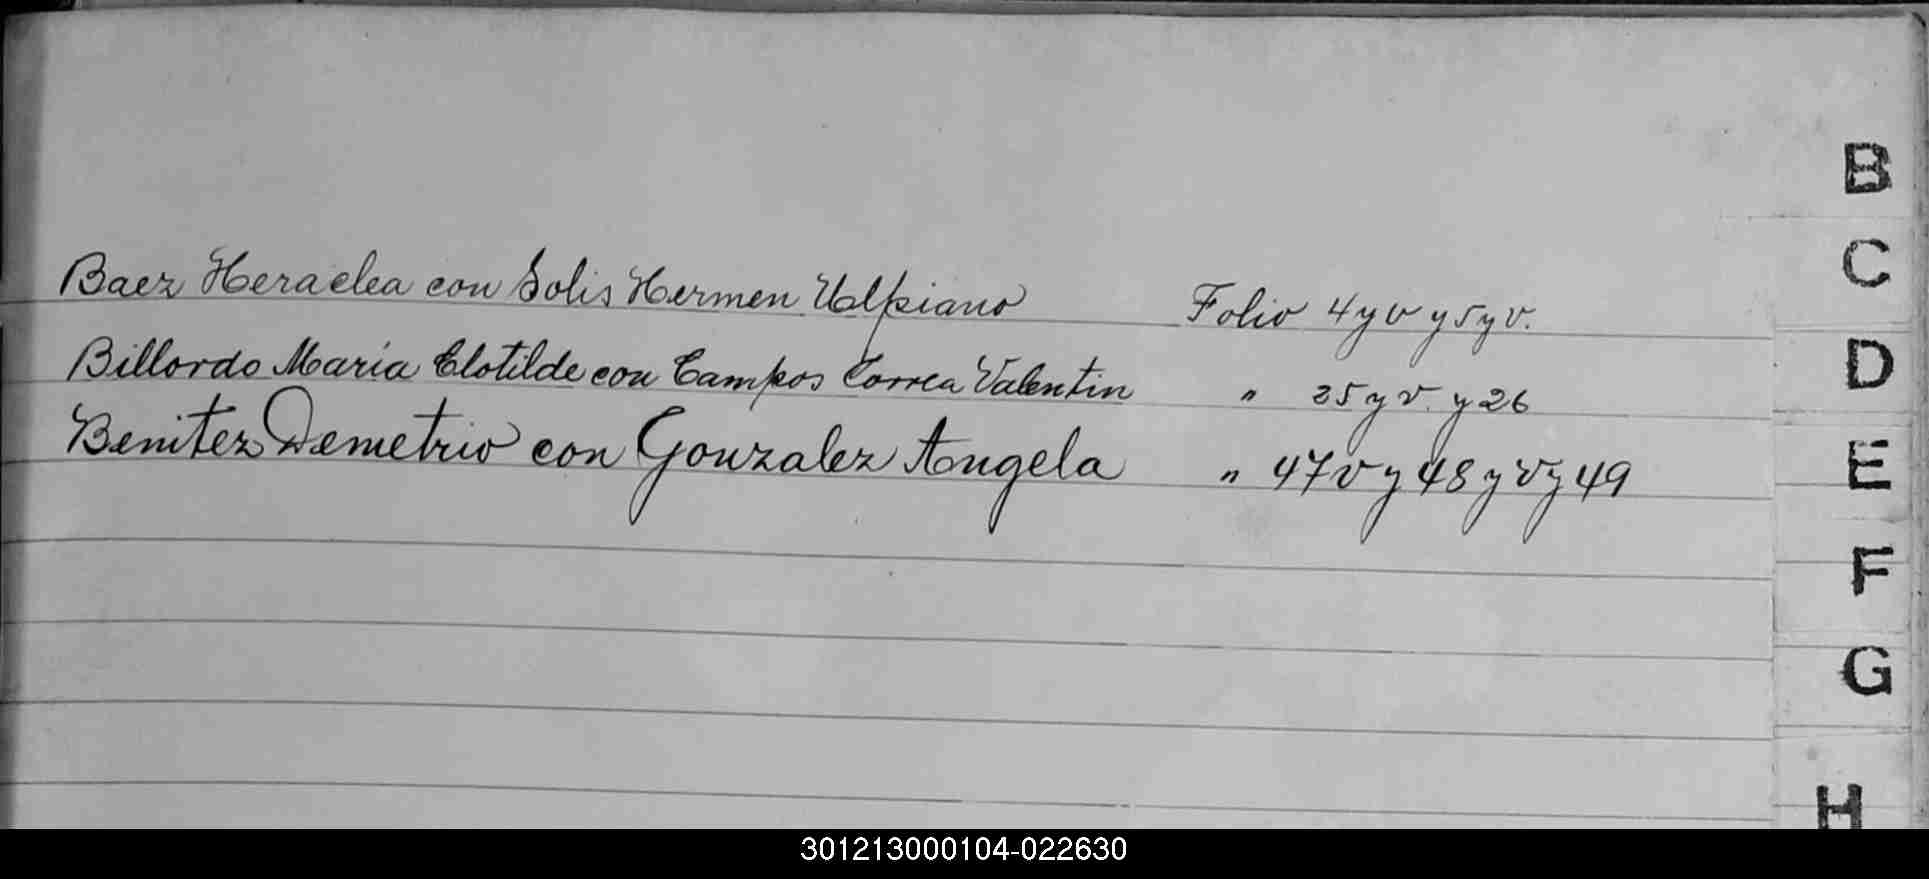 B
C
Baez Heraclea con Solis Hermen Ulpiano Folio 4 y v y 5 y v.
D
Billordo María Clotilde con Campos Correa Valentin " 25 y v. y 26
E
Benitez Demetrio con Gonzalez Angela " 47 v y 48 y v y 49
F
G
H
301213000104-022630